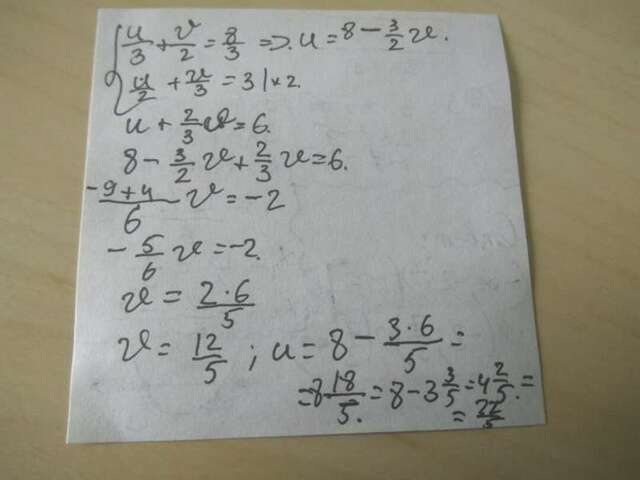 { u/3 + v/2 = 8/3 => u = 8 - 3/2 v.
u/2 + v/3 = 3 | × 2.
u + 2/3 v = 6.
8 - 3/2 v + 2/3 v = 6.
(-9+4)/6 v = -2
- 5/6 v = -2.
v = (2·6)/5
v = 12/5 ; u = 8 - (3·6)/5 =
= 8 18/5. = 8 - 3 3/5 = 4 2/5. =
= 22/5